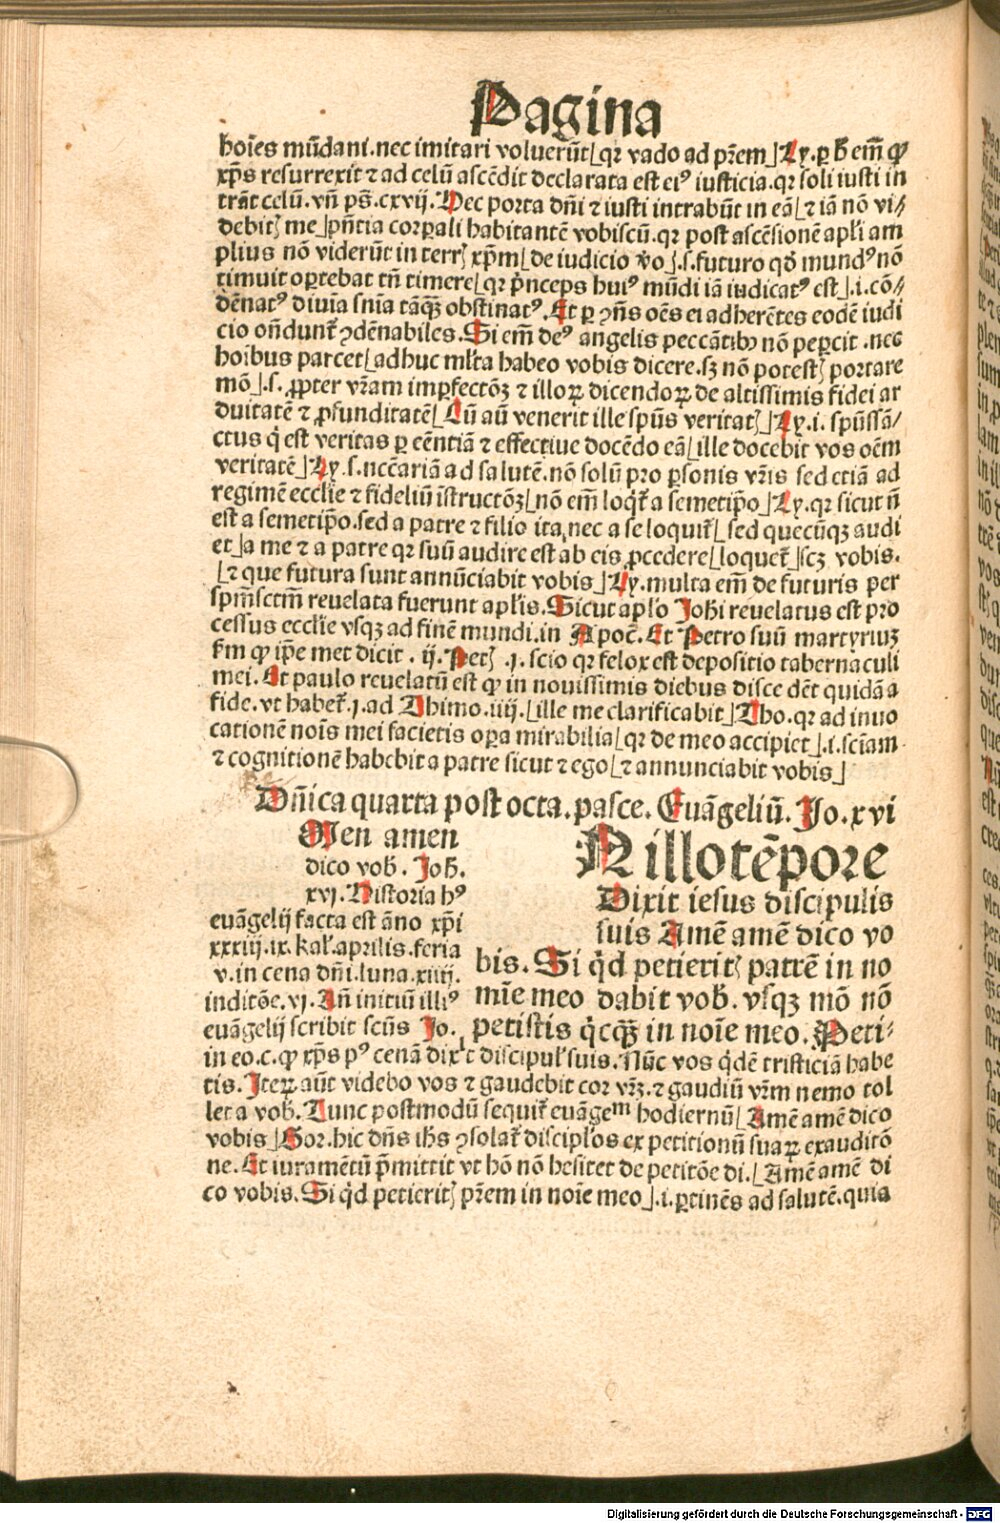 Pagina
hoīes mūdani.nec imitari voluerūt⌊qꝛ vado ad pr̄em⌋Ly.ꝑ ħ em̄ ꝙ
xp̄s resurrexit ⁊ ad celū ascēdit declarata est eiꝰ iusticia.qꝛ soli iusti in
trāt celū.vn̄ ps̄.cxvij.Hec porta dn̄i ⁊ iusti intrabūt in eā⌊⁊ iā nō vi⸗
debitꝭ me⌋p̄ntia corꝑali habitantē vobiscū.qꝛ post ascēsionē apl̄i am
plius nō viderūt in terrꝭ xp̄m⌊de iudicio v̊o⌋.s.futuro qd̓ mundꝰ nō
timuit oꝑtebat tn̄ timere⌊qꝛ p̄nceps huiꝰ mūdi iā iudicatꝰ est⌋.i.cō⸗
dēnatꝰ diuīa sn̄ia tāqꝫ obstinatꝰ.Et ꝑ ꝯn̄s oēs ei adherētes eodē iudi
cio on̄dunt᷑ ꝯdēnabiles.Si em̄ deꝰ angelis peccātibꝰ nō peꝑcit .nec
hoībus parcet⌊adhuc ml̓ta habeo vobis dicere.sꝫ nō potestꝭ portare
mō⌋.s. ꝓpter vr̄am imꝑfectōꝫ ⁊ illoꝝ dicendoꝝ de altissimis fidei ar
duitatē ⁊ ꝓfunditatē⌊Cū aūt venerit ille spūs veritatꝭ⌋Ly.i. spūssā⸗
ctus q̇ est veritas ꝑ eēntiā ⁊ effectiue docēdo eā⌊ille docebit vos oēm
veritatē⌋Ly.s.nccēariā ad salutē.nō solū pro ꝑsonis vr̄is sed etiā ad
regimē ecclīe ⁊ fideliū īstructōꝫ⌊nō em̄ loqt᷑ a semetip̄o⌋Ly.qꝛ sicut n̄
est a semetip̄o.sed a patre ⁊ filio ita nec a se loquit᷑⌊sed quecūqꝫ audi
et⌋a me ⁊ a patre qꝛ suū audire est ab eis ꝓcedere⌊loquet᷑⌋scꝫ vobis.
⌊⁊ que futura sunt annūciabit vobis⌋Ly.multa em̄ de futuris per
spm̄sctm̄ reuelata fuerunt apl̄is.Sicut apl̄o Joħi reuelatus est pro
cessus ecclīe vsqꝫ ad finē mundi.in Apoc̄. Et Petro suū martyriuꝫ
fm̄ ꝙ ip̄e met dicit . ij. Petꝭ .j. scio qꝛ felox est depositio tabernaculi
mei. Et paulo reuelatū est ꝙ in nouissimis diebus disce dēt quidā a
fide. vt habet᷑.j.ad Thimo.iiij.⌊ille me clarificabit⌋Tho.qꝛ ad inuo
cationē nois mei facietis oꝑa mirabilia⌊qꝛ de meo accipiet⌋.i.sciam
⁊ cognitionē habebit a patre sicut ⁊ ego⌊⁊ annunciabit vobis⌋
Dn̄ica quarta post octa.pasce. Euāgeliū. Jo.xvi
Men amen
dico voƀ. Joħ.
xvj. Historia hꝰ
euāgelij facta est āno xp̄i
xxxiij.ix.kal᷑.aprilis.feria
v.in cena dn̄i.luna.xiiij.
inditōe.vj.An̄ initiū illiꝰ
euāgelij scribit scūs Jo.
IN illo tēpore
Dixit iesus discipulis
suis Amē amē dico vo
bis. Si q̇d petieritꝭ patrē in no
mīe meo dabit voƀ. vsqꝫ mō nō
petistis q̇cqꝫ in noīe meo. Peti⸗
in eo.c.ꝙ xp̄s pꝰ cenā dixit discipul᷑ suis. Nūc vos q̇dē tristiciā habe
tis. Iteꝝ aūt videbo vos ⁊ gaudebit cor vr̄ꝫ.⁊ gaudiū vr̄m nemo tol
let a voƀ. Tunc postmodū sequit᷑ euāgeᵐ hodiernū⌊Amē amē dico
vobis⌋Gor.hic dn̄s ih̄s ꝯsolat᷑ discipl̓os ex petitionū suaꝝ exauditō
ne. Et iuramētū p̄mittit vt hō nō hesitet de petitōe di.⌊Amē amē di
co vobis. Si q̇d petieritꝭ pr̄em in noīe meo⌋.i.ꝑtinēs ad salutē.quia
Digitalisierung gefördert durch die Deutsche Forschungsgemeinschaft - DFG